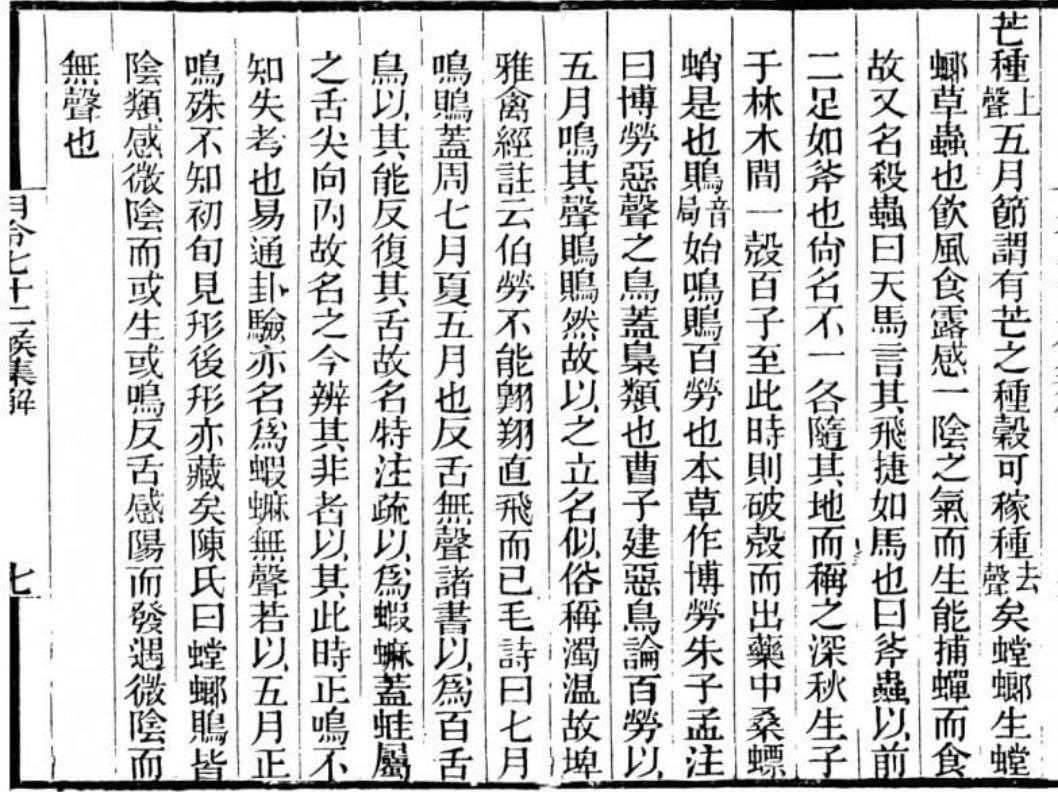 芒種上聲五月節謂有芒之種穀可稼種去聲矣螳螂生螳
螂草蟲也飲風食露感一陰之氣而生能捕蟬而食
故又名殺蟲曰天馬言其飛捷如馬也曰斧蟲以前
二足如斧也尙名不一各隨其地而稱之深秋生子
于林木間一殼百子至此時則破殼而出藥中桑螵
蛸是也鵙音局始鳴鵙百勞也本草作博勞朱子孟注
曰博勞惡聲之鳥蓋梟類也曹子建惡鳥論百勞以
五月鳴其聲鵙鵙然故以之立名似俗稱濁温故埤
雅禽經註云伯勞不能翱翔直飛而已毛詩曰七月
鳴鵙蓋周七月夏五月也反舌無聲諸書以爲百舌
鳥以其能反復其舌故名特注疏以爲蝦蟆蓋蛙屬
之舌尖向内故名之今辨其非者以其此時正鳴不
知失考也易通卦驗亦名爲蝦蟆無聲若以五月正
鳴殊不知初旬見形後形亦藏矣陳氏曰螳螂鵙皆
陰類感微陰而或生或鳴反舌感陽而發遇微陰而
無聲也
月令七十二候集解
七